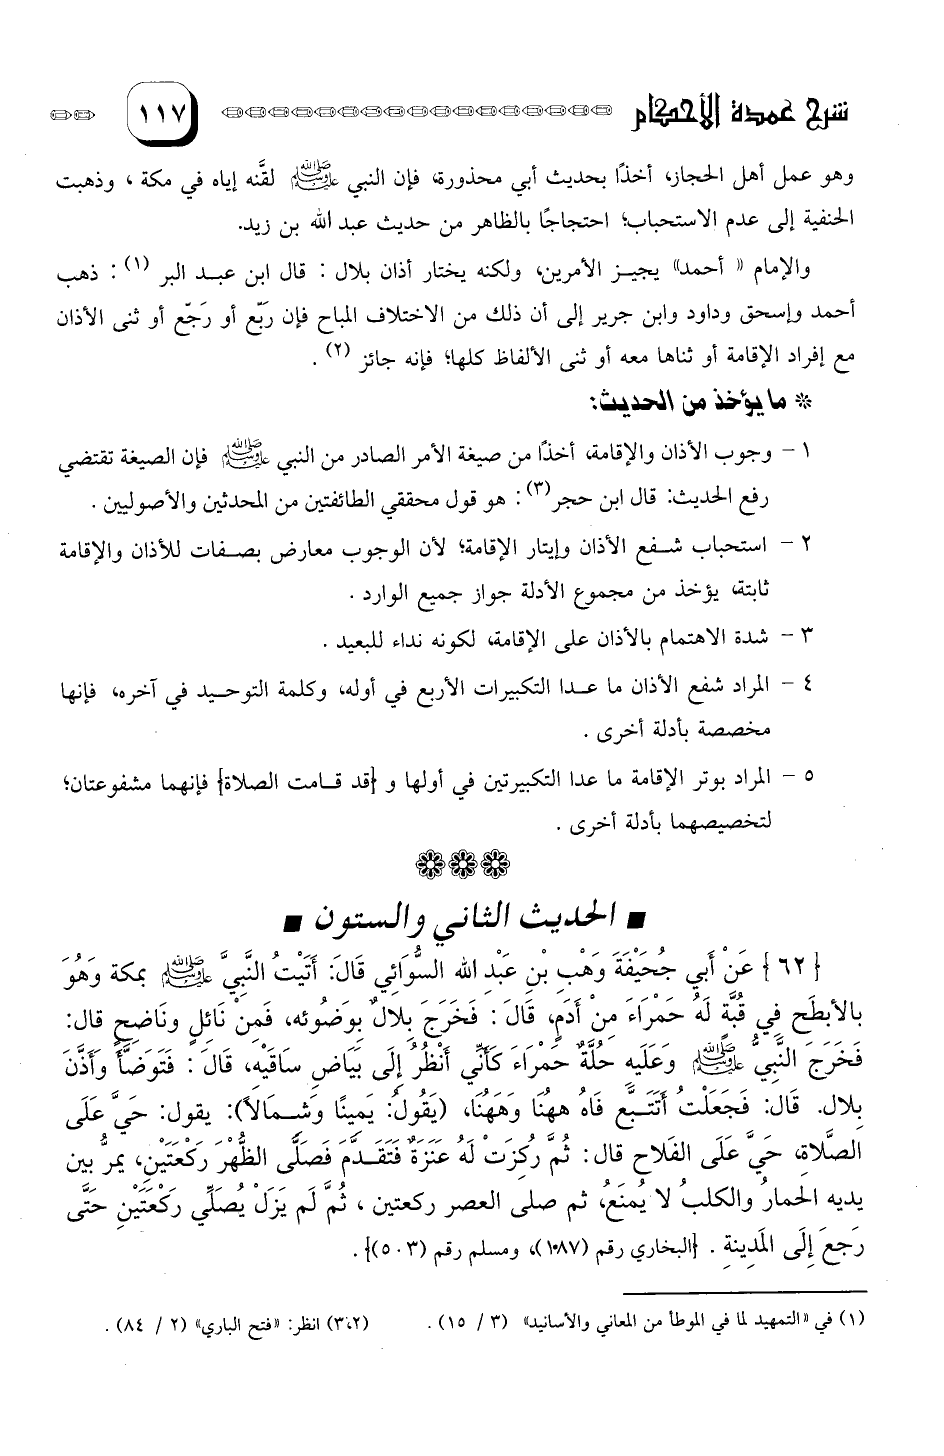 شرح عمدة الأحكام ١١٧
وهو عمل أهل الحجاز، أخذًا بحديث أبي محذورة، فإن النبي ﷺ لقَّنه إياه في مكة ، وذهبت
الحنفية إلى عدم الاستحباب؛ احتجاجًا بالظاهر من حديث عبد الله بن زيد.
والإمام « أحمد» يجيـز الأمرين، ولكنه يختار أذان بلال : قال ابن عبـد البر (١) : ذهب
أحمد وإسحق وداود وابن جرير إلى أن ذلك من الاختلاف المباح فإن رَبّع أو رَجّع أو ثنى الأذان
مع إفراد الإقامة أو ثناها معه أو ثنى الألفاظ كلها؛ فإنه جائز (٢) .
* ما يؤخذ من الحديث:
١ - وجوب الأذان والإقامة، أخذًا من صيغة الأمر الصادر من النبي ﷺ فإن الصيغة تقتضي
رفع الحديث: قال ابن حجر(٣) : هو قول محققي الطائفتين من المحدثين والأصوليين .
٢ - استحباب شـفع الأذان وإيتار الإقامة؛ لأن الوجوب معارض بصـفات للأذان والإقامة
ثابتة، يؤخذ من مجموع الأدلة جواز جميع الوارد .
٣ - شدة الاهتمام بالأذان على الإقامة، لكونه نداء للبعيد .
٤ - المراد شفع الأذان ما عـدا التكبيرات الأربع في أوله، وكلمة التوحـيد في آخره، فإنها
مخصصة بأدلة أخرى .
٥ - المراد بوتر الإقامة ما عدا التكبيرتين في أولها و {قد قـامت الصلاة} فإنهما مشفوعتان؛
لتخصيصهما بأدلة أخرى .
■ الحديث الثاني والستون ■
{٦٢} عَنْ أبي جُحَيْفَةَ وَهْبِ بْنِ عَبْدِ الله السُّوَائي قَالَ: أَتَيْتُ النَّبِيَّ ﷺ بمكة وَهُوَ
بالأبطَحِ في قُبَّةٍ لَهُ حَمْرَاءَ مِنْ أدَمٍ، قَالَ : فَخَرَجَ بِلالٌ بِوَضُوئه، فَمِنْ نَائِلٍ ونَاضِحٍ قال:
فَخَرَجَ النَّبِيُّ ﷺ وَعَلَيهِ حُلَّةٌ حمْرَاءَ كَأنِّي أنْظُرُ إلَى بَيَاضِ سَاقَيْهِ، قَالَ : فَتَوَضَّأَ وَأذَّنَ
بلال. قَال: فَجَعَلْتُ أتَتَبَّع فَاهُ ههُنَا وَههُنَا، (يَقُولُ: يَمِينًا وَشـمَالاً): يقول: حَيَّ عَلَى
الصَّلاة، حَيَّ عَلَى الفَلاح قال: ثُمَّ رُكِزَتْ لَهُ عَنَزَةٌ فَتَقَـدَّمَ فَصَلَّى الظُّهْرَ رَكْعَتَيْنِ، يمرُّ بين
يديه الحمارُ والكلبُ لا يُمنَعُ، ثم صلى العصر ركعتين ، ثُمَّ لَم يَزَلْ يُصَلِّي رَكْعَتَيْنِ حَتَّى
رَجَعَ إلَى المَدِينةِ . {البخاري رقم (١٠٨٧)، ومسلم رقم (٥٠٣)}.
(١) في «التمهيد لما في الموطأ من المعاني والأسانيد» (٣ / ١٥) . (٣،٢) انظر: «فتح الباري» (٢ / ٨٤) .